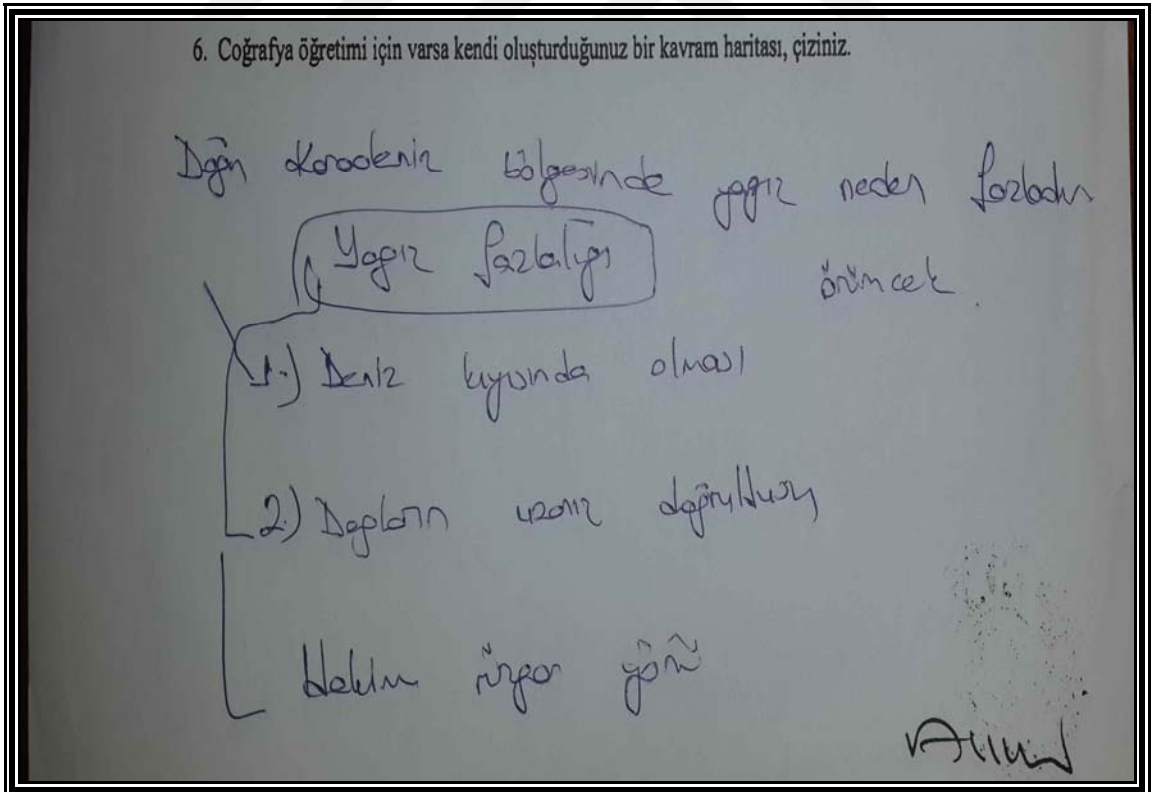 6. Coğrafya öğretimi için varsa kendi oluşturduğunuz bir kavram haritası, çiziniz.
Doğu Karadeniz bölgesinde yağış neden fazladır
Yağış fazlalığı
örümcek.
1.) Deniz kıyısında olması
2.) Dağların uzanış doğrultusu
Hakim rüzgar yönü